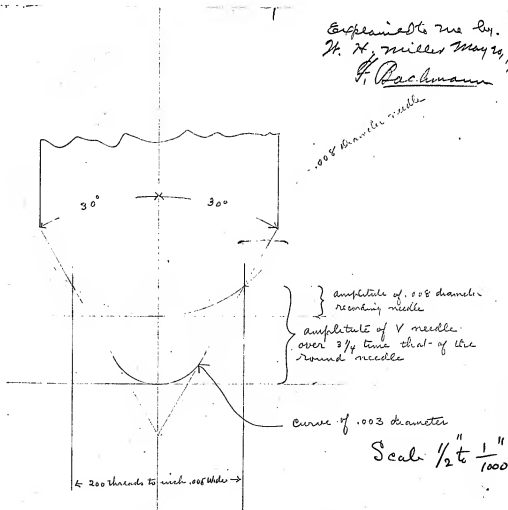 Explained to me by.
W. H. Miller May 20,
F. Bachmann
.008 diameter needle
30° 30°
amplitude of .008 diameter
recording needle
amplitude of V needle
over 3 1/4 time that of the
round needle
curve of .003 diameter
Scale 1/2" to 1/1000"
200 threads to inch .005 Wide